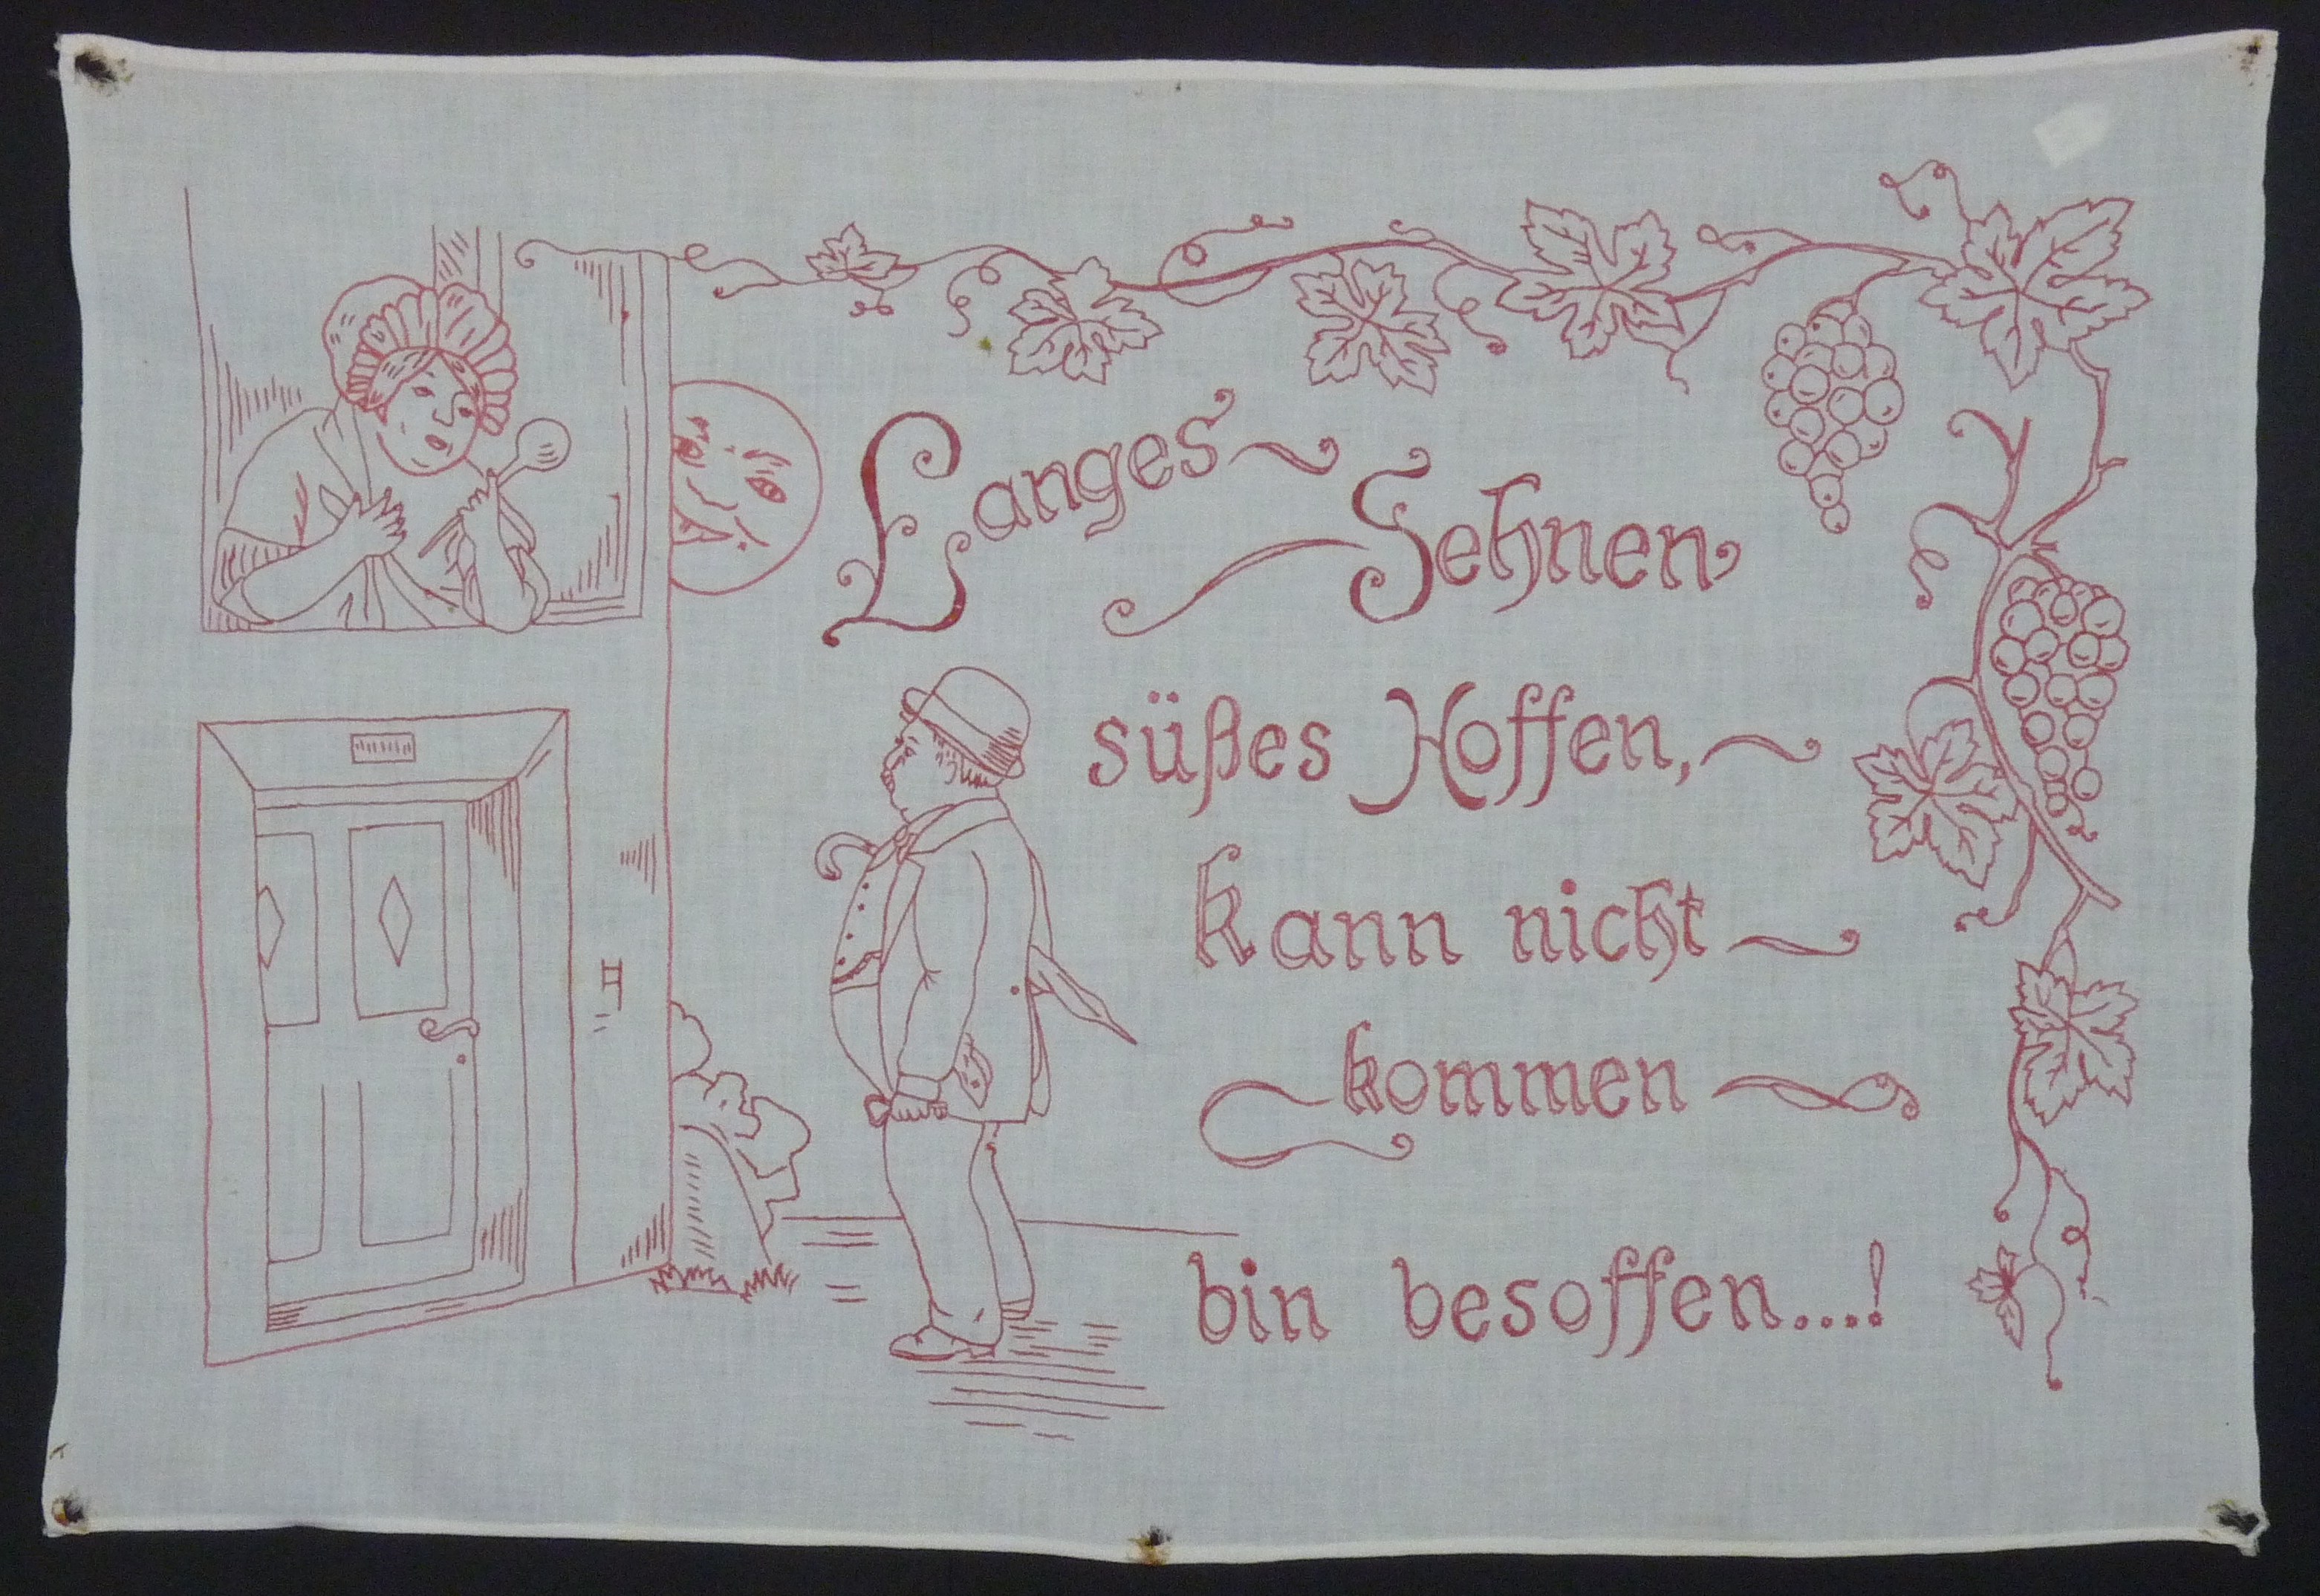 Langes
Sehnen
süßes Hoffen,
kann nicht
kommen
bin besoffen...!